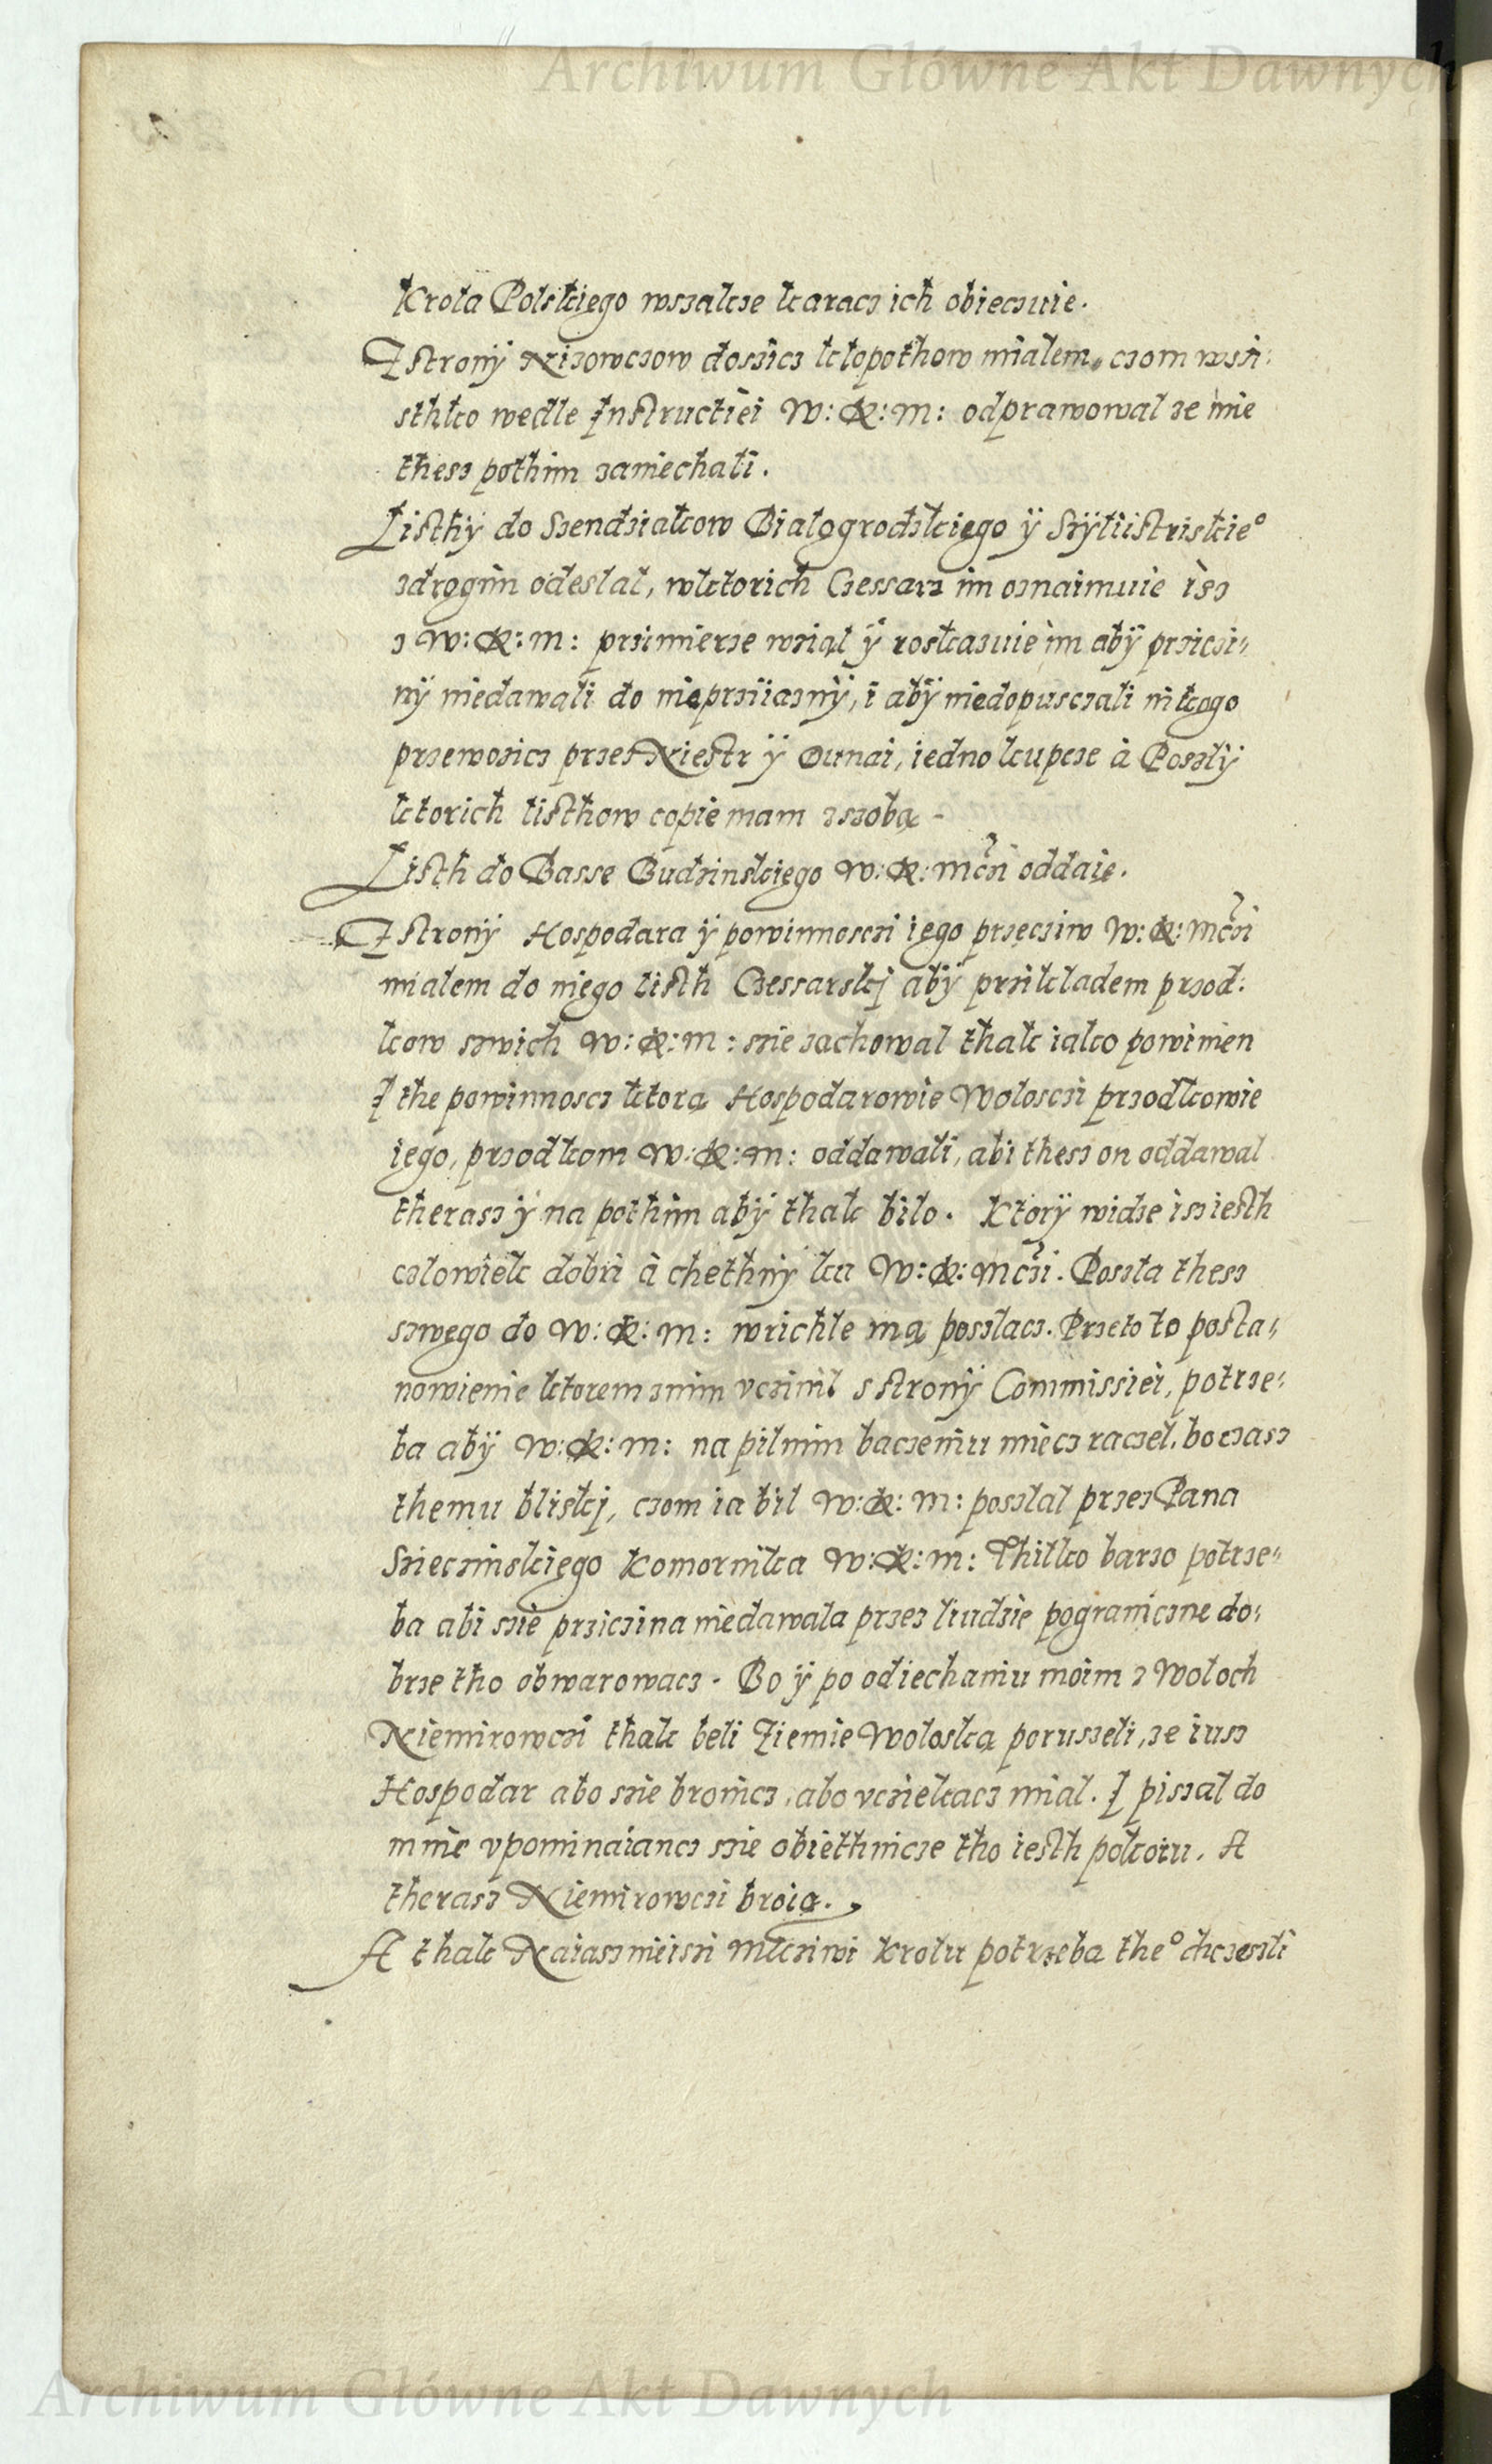 Archiwum Główne Akt Dawnych
Krola Polskiego wszakze karacz ich obieczuie.
Z strony Nizowczow dossicz klopothow mialem, czom wszi:
sthko wedle Instructiei W: K: M: odprawowal ze mie
thesz pothim zaniechali.
Listhy do Szendziakow Bialogrodzkiego ÿ Szÿliistriskieº
zdrogim odeslal, wktorich Czessarz im oznaimuie isz
z W: K: M: przimierze wziąl ÿ roskazuie im abÿ prziczi„
nÿ niedawali do nieprziiaznÿ, i abÿ niedopusczali nikogo
przewozicz przes Niestr ÿ Dunai, iedno kupcze à Poszlÿ
ktorich listhow copie mam zszobą -
Listh do Basse Budzinskiego W: K: Mczi oddaię.
Z strony Hospodara ÿ powinnosczi iego przeciw W: K: Mczi
mialem do niego listh Czessarskj abÿ przikladem przod:
kow szwich W: K: M: szie zachowal thak iako powinien
I the powinnoscz ktorą Hospodarowie Wolosczi przodkowie
iego, przodkom W: K: M: oddawali, abi thesz on oddawal
therasz ÿ na pothim abÿ thak bilo. Ktorÿ widze isz iesth
czlowiek dobri à chethnÿ ku W: K: Mczi. Poszla thesz
szwego do W: K: M: wrichle mą poszlacz. Przeto to posta„
nowienie ktorem znim vczinil s strony Commissiei, potrze„
ba abÿ W: K: M: na pilnim baczeniu miecz raczel, bo czasz
themu bliskj, czom ia bil W: K: M: poszlal przez Pana
Szieczinskiego Komornika W: K: M: Thilko barzo potrze„
ba abi szie prziczina niedawala przez liudzie pograniczne do„
brze tho obwarowacz. Bo ÿ po odiechaniu moim z Woloch
Niemirowczi thak beli Ziemie Woloską poruszeli, ze iusz
Hospodar abo szie bronicz, abo vcziekacz mial. I piszal do
mnie vpominaiancz szie obiethnicze tho iesth pokoiu. A
therasz Niemirowczi broią.
A thak Naiasznieiszi Mlcziwi Krolu potrzeba theº chczeszli
Archiwum Główne Akt Dawnych